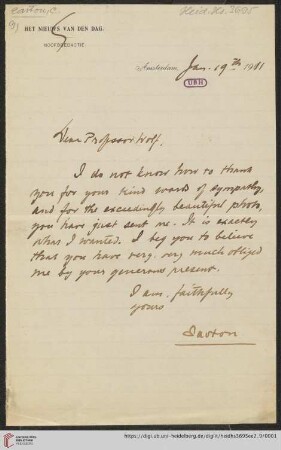 Easton, C.
Heid. Hs. 3695
HET NIEUWS VAN DEN DAG.
HOOFDREDACTIE
Amsterdam, Jan. 19th 1911
UBH
Dear Professor Wolf,
I do not know how to thank
you for your kind words of sympathy,
and for the exceedingly beautiful photo,
you have just sent me. It is exactly
what I wanted. I beg you to believe
that you have very, very much obliged
me by your generous present.
I am, faithfully
yours
Easton
UNIVERSITÄTS-
BIBLIOTHEK
HEIDELBERG